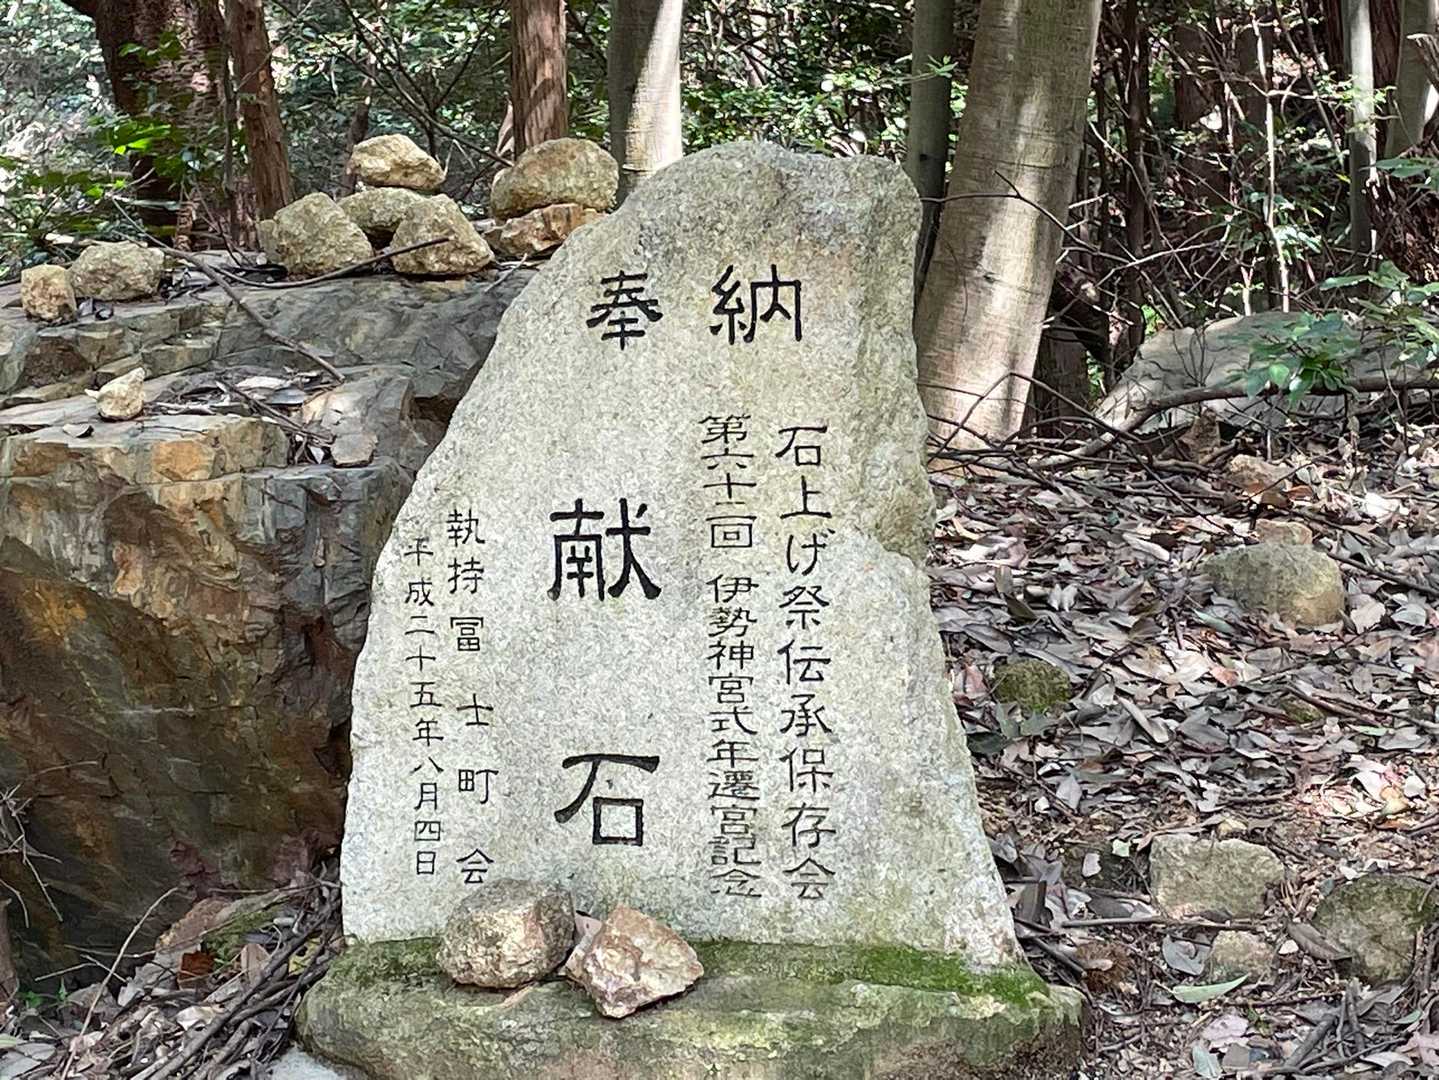 奉納
石上げ祭伝承保存会
第六十二回 伊勢神宮式年遷宮記念
献石
執持 冨士町会
平成二十五年八月四日